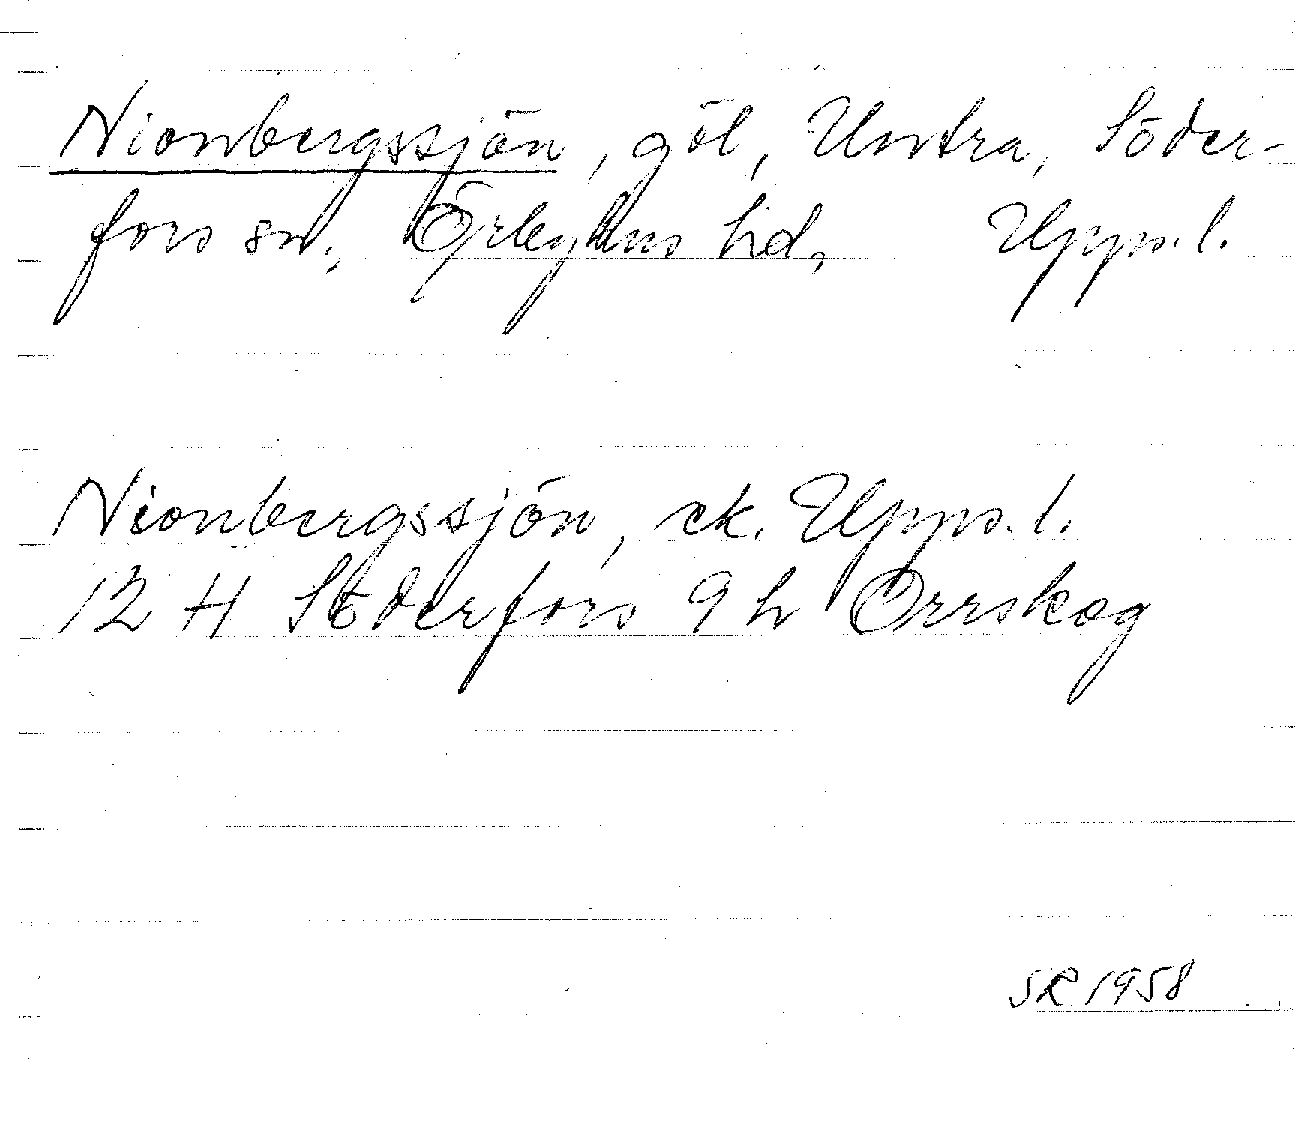 Nionbergssjön, göl, Untra, Söder-
fors sn, Örbyhus hd, Uppl.
Nionbergssjön, ek. Uppl.
12 H Söderfors 9 h Orrskog
SR 1958